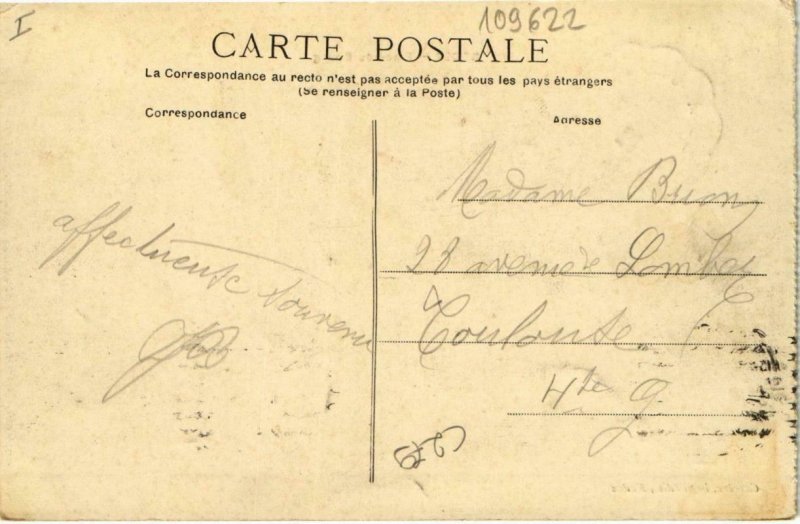 I
109622
CARTE POSTALE
La Correspondance au recto n'est pas acceptée par tous les pays étrangers
(Se renseigner à la Poste)
Correspondance
Adresse
Madame
28 avenue Lombez
Toulouse
Hte G.
affectueux souvenir